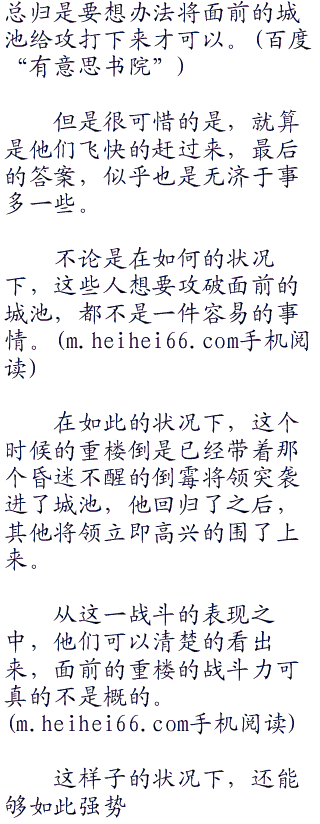 总归是要想办法将面前的城
池给攻打下来才可以。(百度
“有意思书院”)
但是很可惜的是，就算
是他们飞快的赶过来，最后
的答案，似乎也是无济于事
多一些。
不论是在如何的状况
下，这些人想要攻破面前的
城池，都不是一件容易的事
情。(m.heihei66.com手机阅
读)
在如此的状况下，这个
时候的重楼倒是已经带着那
个昏迷不醒的倒霉将领突袭
进了城池，他回归了之后，
其他将领立即高兴的围了上
来。
从这一战斗的表现之
中，他们可以清楚的看出
来，面前的重楼的战斗力可
真的不是概的。
(m.heihei66.com手机阅读)
这样子的状况下，还能
够如此强势